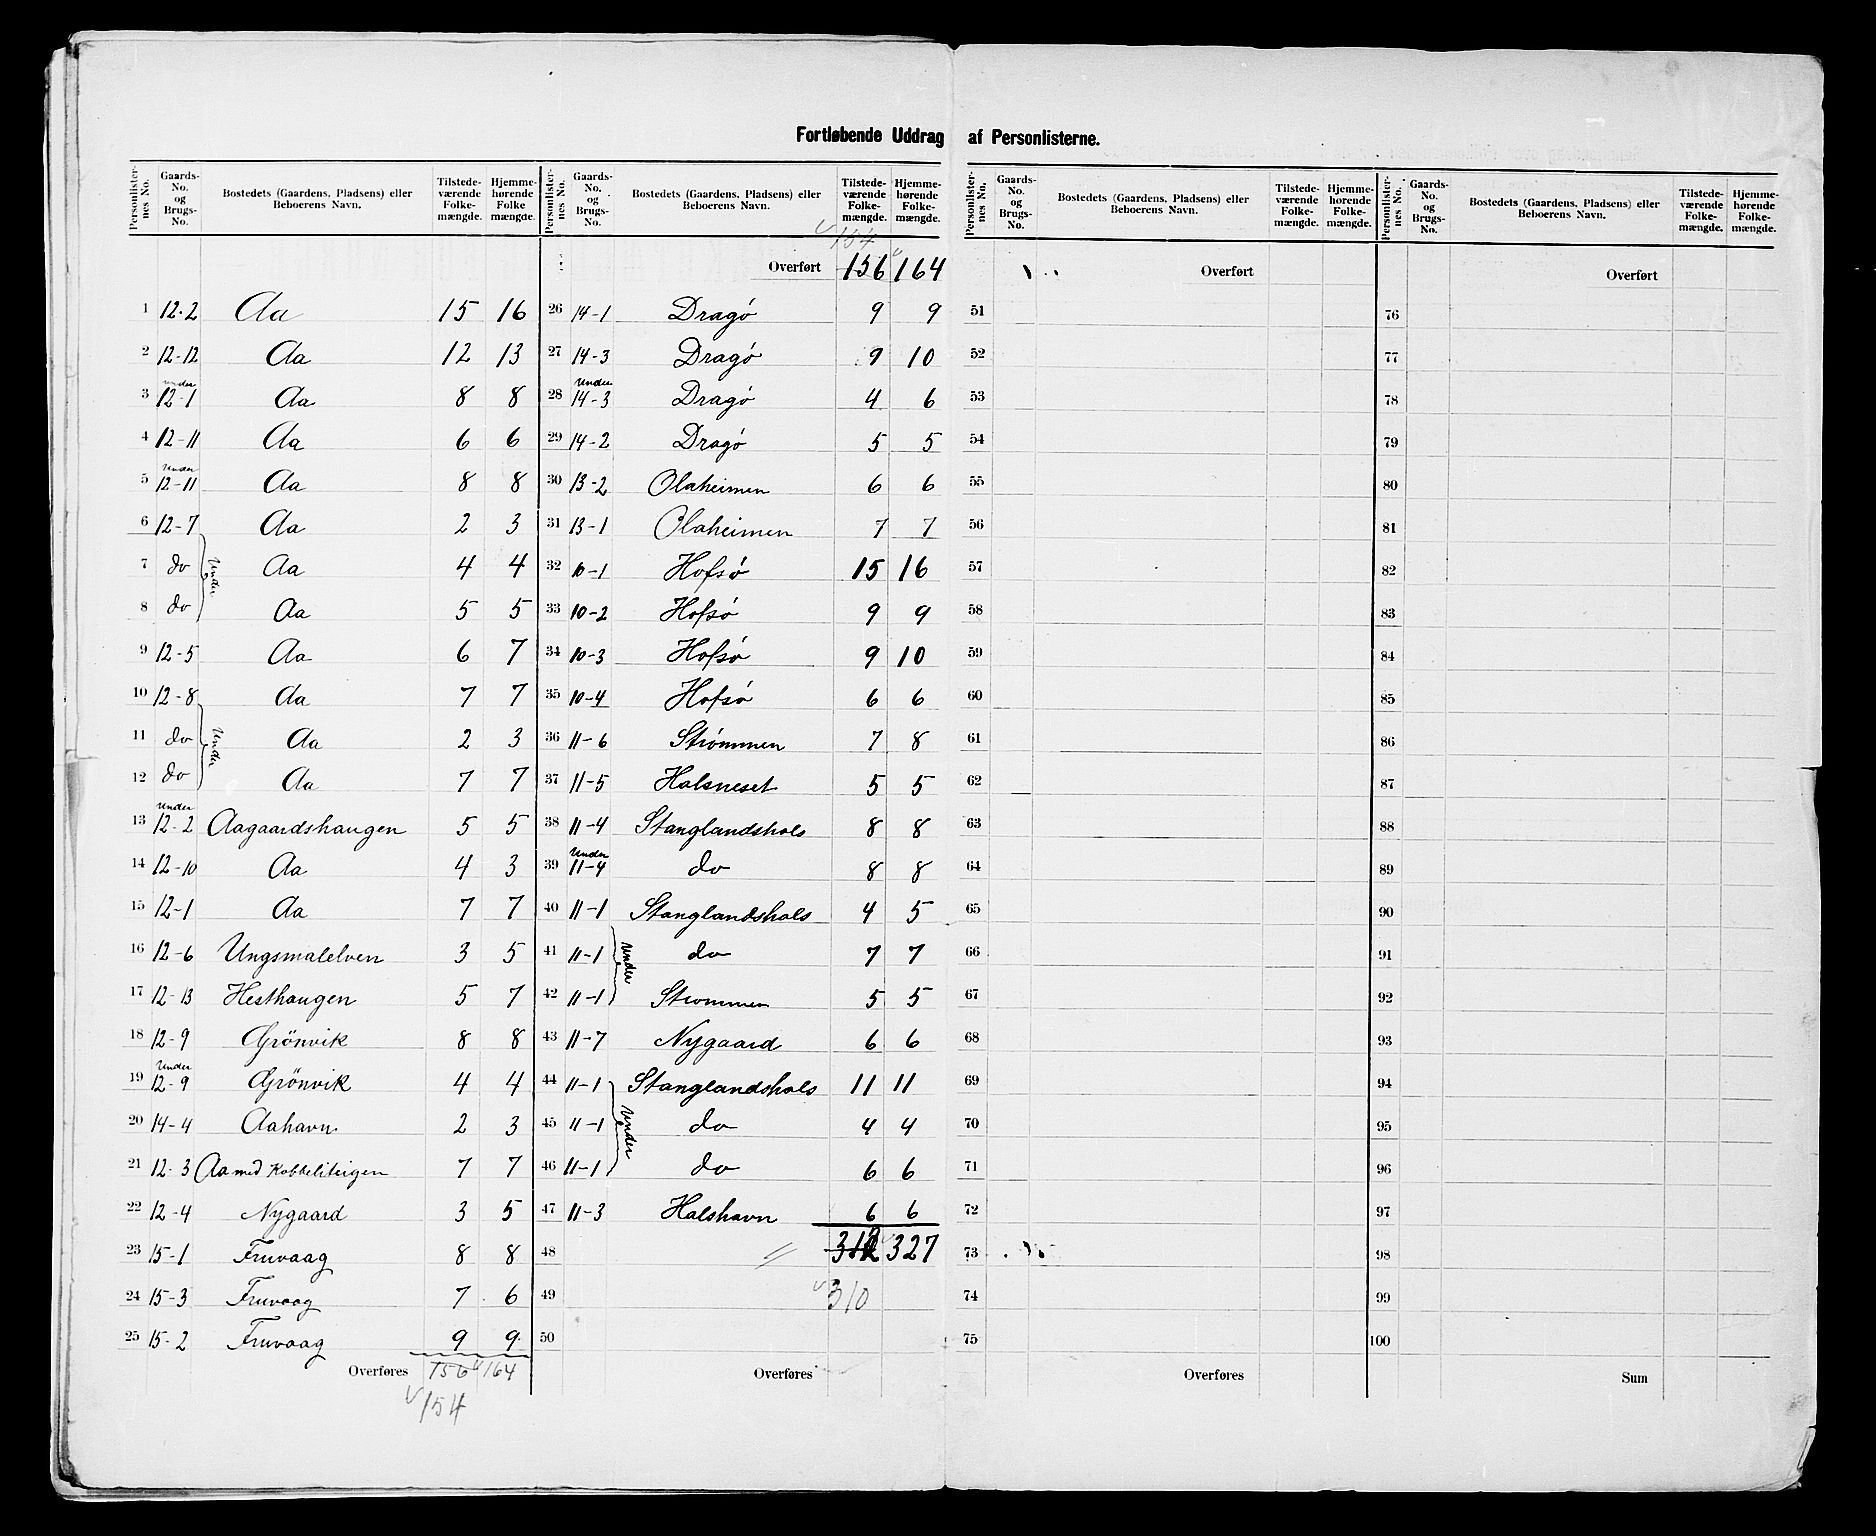 Fortløbende Uddrag af Personlisterne.
Personlister-nes No. Gaards-No. og Brugs-No. Bostedets (Gaardens, Pladsens) eller Beboerens Navn. Tilstede-værende Folke-mængde. Hjemme-hørende Folke mængde.
1 12-2 Aa 15 16
2 12-12 Aa 12 13
3 under 12-1 Aa 8 8
4 12-11 Aa 6 6
5 Under 12-11 Aa 8 8
6 12-7 Aa 2 3
7 do Under Aa 4 4
8 do Aa 5 5
9 12-5 Aa 6 7
10 12-8 Aa 7 7
11 do Under Aa 2 3
12 do Aa 7 7
13 Under 12-2 Aagaardshaugen 5 5
14 12-10 Aa 4 3
15 12-1 Aa 7 7
16 12-6 Ungsmalelven 3 5
17 12-13 Hesthaugen 5 7
18 12-9 Grönvik 8 8
19 Under 12-9 Grönvik 4 4
20 14-4 Aahavn 2 3
21 12-3 Aa med Kobbeliteigen 7 7
22 12-4 Nygaard 3 5
23 15-1 Fruvaag 8 8
24 15-3 Fruvaag 7 6
25 15-2 Fruvaag 9 9
Overføres 156 164
154
Personlister-nes No. Gaards-No. og Brugs-No. Bostedets (Gaardens, Pladsens) eller Beboerens Navn. Tilstede-værende Folke-mængde. Hjemme-hørende Folke-mængde.
154
Overført 156 164
26 14-1 Dragö 9 9
27 14-3 Dragö 9 10
28 Under 14-3 Dragö 4 6
29 14-2 Dragö 5 5
30 13-2 Olaheimen 6 6
31 13-1 Olaheimen 7 7
32 10-1 Hofsø 15 16
33 10-2 Hofsø 9 9
34 10-3 Hofsø 9 10
35 10-4 Hofsø 6 6
36 11-6 Strømmen 7 8
37 11-5 Halsneset 5 5
38 11-4 Stanglandshals 8 8
39 Under 11-4 do 8 8
40 11-1 Stanglandshals 4 5
41 11-1 Under do 7 7
42 11-1 Strømmen 5 5
43 11-7 Nygaard 6 6
44 11-1 Stanglandshals 11 11
45 11-1 Under do 4 4
46 11-1 do 6 6
47 11-3 Halshavn 6 6
48 312 327
49 310
50
Overføres
Personlister-nes No. Gaards-No. og Brugs-No. Bostedets (Gaardens, Pladsens) eller Beboerens Navn. Tilstede-værende Folke-mængde. Hjemme-hørende Folke-mængde.
Overført
51
52
53
54
55
56
57
58
59
60
61
62
63
64
65
66
67
68
69
70
71
72
73
74
75
Overføres
Personlister-nes No. Gaards-No. og Brugs-No. Bostedets (Gaardens, Pladsens) eller Beboerens Navn. Tilstede-værende Folke-mængde. Hjemme-hørende Folke-mængde.
Overført
76
77
78
79
80
81
82
83
84
85
86
87
88
89
90
91
92
93
94
95
96
97
98
99
100
Sum